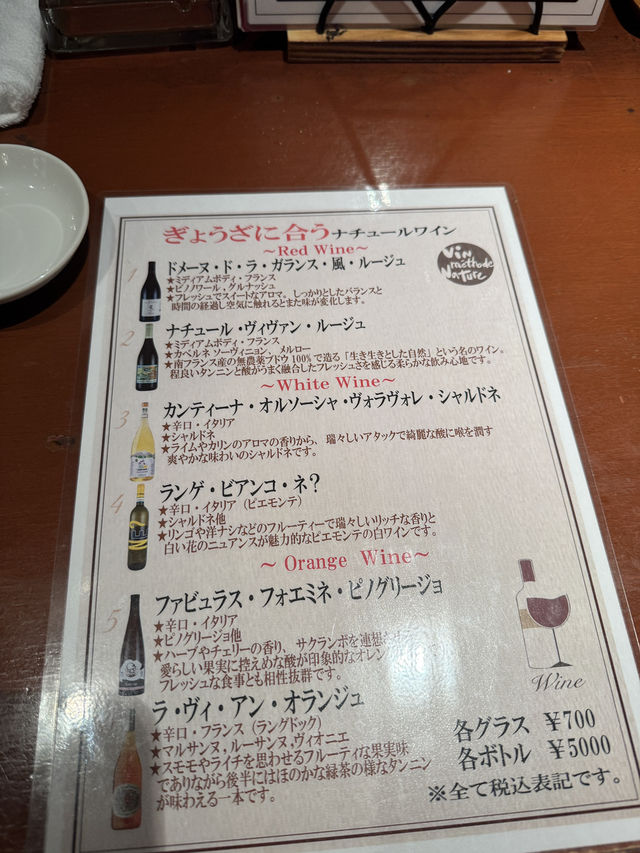 ぎょうざに合うナチュールワイン
～Red Wine～
Vin
méthode
Nature
1
ドメーヌ・ド・ラ・ガランス・風・ルージュ
★ミディアムボディ・フランス
★ピノワール、グルナッシュ
★フレッシュでスイートなアロマ。しっかりとしたバランスと
時間の経過し空気に触れるとまた味が変化します。
2
ナチュール・ヴィヴァン・ルージュ
★ミディアムボディ・フランス
★カベルネ ソーヴィニョン、メルロー
★南フランス産の無農薬ブドウ100%で造る「生き生きとした自然」という名のワイン。
程良いタンニンと酸がうまく融合したフレッシュさを感じる柔らかな飲み心地です。
～White Wine～
3
カンティーナ・オルソーシャ・ヴォラヴォレ・シャルドネ
★辛口・イタリア
★シャルドネ
★ライムやカリンのアロマの香りから、瑞々しいアタックで綺麗な酸に喉を潤す
爽やかな味わいのシャルドネです。
4
ランゲ・ビアンコ・ネ？
★辛口・イタリア（ピエモンテ）
★シャルドネ他
★リンゴや洋ナシなどのフルーティーで瑞々しいリッチな香りと
白い花のニュアンスが魅力的なピエモンテの白ワインです。
～ Orange Wine～
5
ファビュラス・フォエミネ・ピノグリージョ
★辛口・イタリア
★ピノグリージョ他
★ハーブやチェリーの香り、サクランボを連想
愛らしい果実に控えめな酸が印象的なオレン
フレッシュな食事とも相性抜群です。
ラ・ヴィ・アン・オランジュ
★辛口・フランス（ラングドック）
★マルサンヌ,ルーサンヌ,ヴィオニエ
★スモモやライチを思わせるフルーティな果実味
でありながら後半にはほのかな緑茶の様なタンニン
が味わえる一本です。
Wine
各グラス ￥700
各ボトル ￥5000
※全て税込表記です。